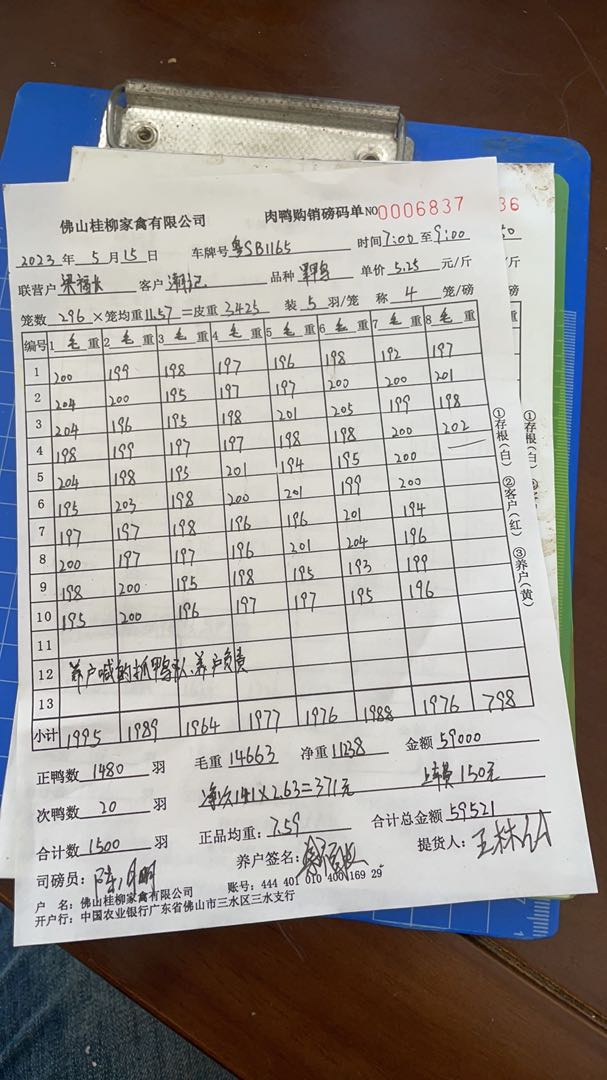 佛山桂柳家禽有限公司 肉鸭购销磅码单 NO 0006837
2023 年 5 月 15 日 车牌号 粤SB1165 时间 7:00 至 9:00
联营户 客户 潮记 品种 单价 5.25 元/斤
笼数 296 ×笼均重 11.57 =皮重 3425 装 5 羽/笼 称 4 笼/磅
编号 1 毛 重 2 毛 重 3 毛 重 4 毛 重 5 毛 重 6 毛 重 7 毛 重 8 毛 重
1 200 199 198 197 196 198 192 197
2 204 200 195 197 197 200 200 201
3 204 196 195 198 201 205 199 198
4 198 199 197 197 198 198 200 202
5 204 198 195 201 194 195 200
6 195 203 198 200 201 199 200
7 197 197 198 196 196 201 194
8 200 197 197 196 201 204 196
9 198 200 195 198 195 193 199
10 195 200 196 197 197 195 196
11
12 养户喊的抓鸭队、养户负责
13
小计 1995 1989 1964 1977 1976 1988 1976 798
正鸭数 1480 羽 毛重 14663 净重 11238 金额 59000
次鸭数 20 羽 141×2.63=371元 上车费 150元
合计数 1500 羽 正品均重: 7.59 合计总金额 59521
司磅员: 养户签名: 提货人:
户 名: 佛山桂柳家禽有限公司 账号: 444 401 010 400 169 29
开户行: 中国农业银行广东省佛山市三水区三水支行
①存根(白) ②客户(红) ③养户(黄)
①存根(白)
36
50